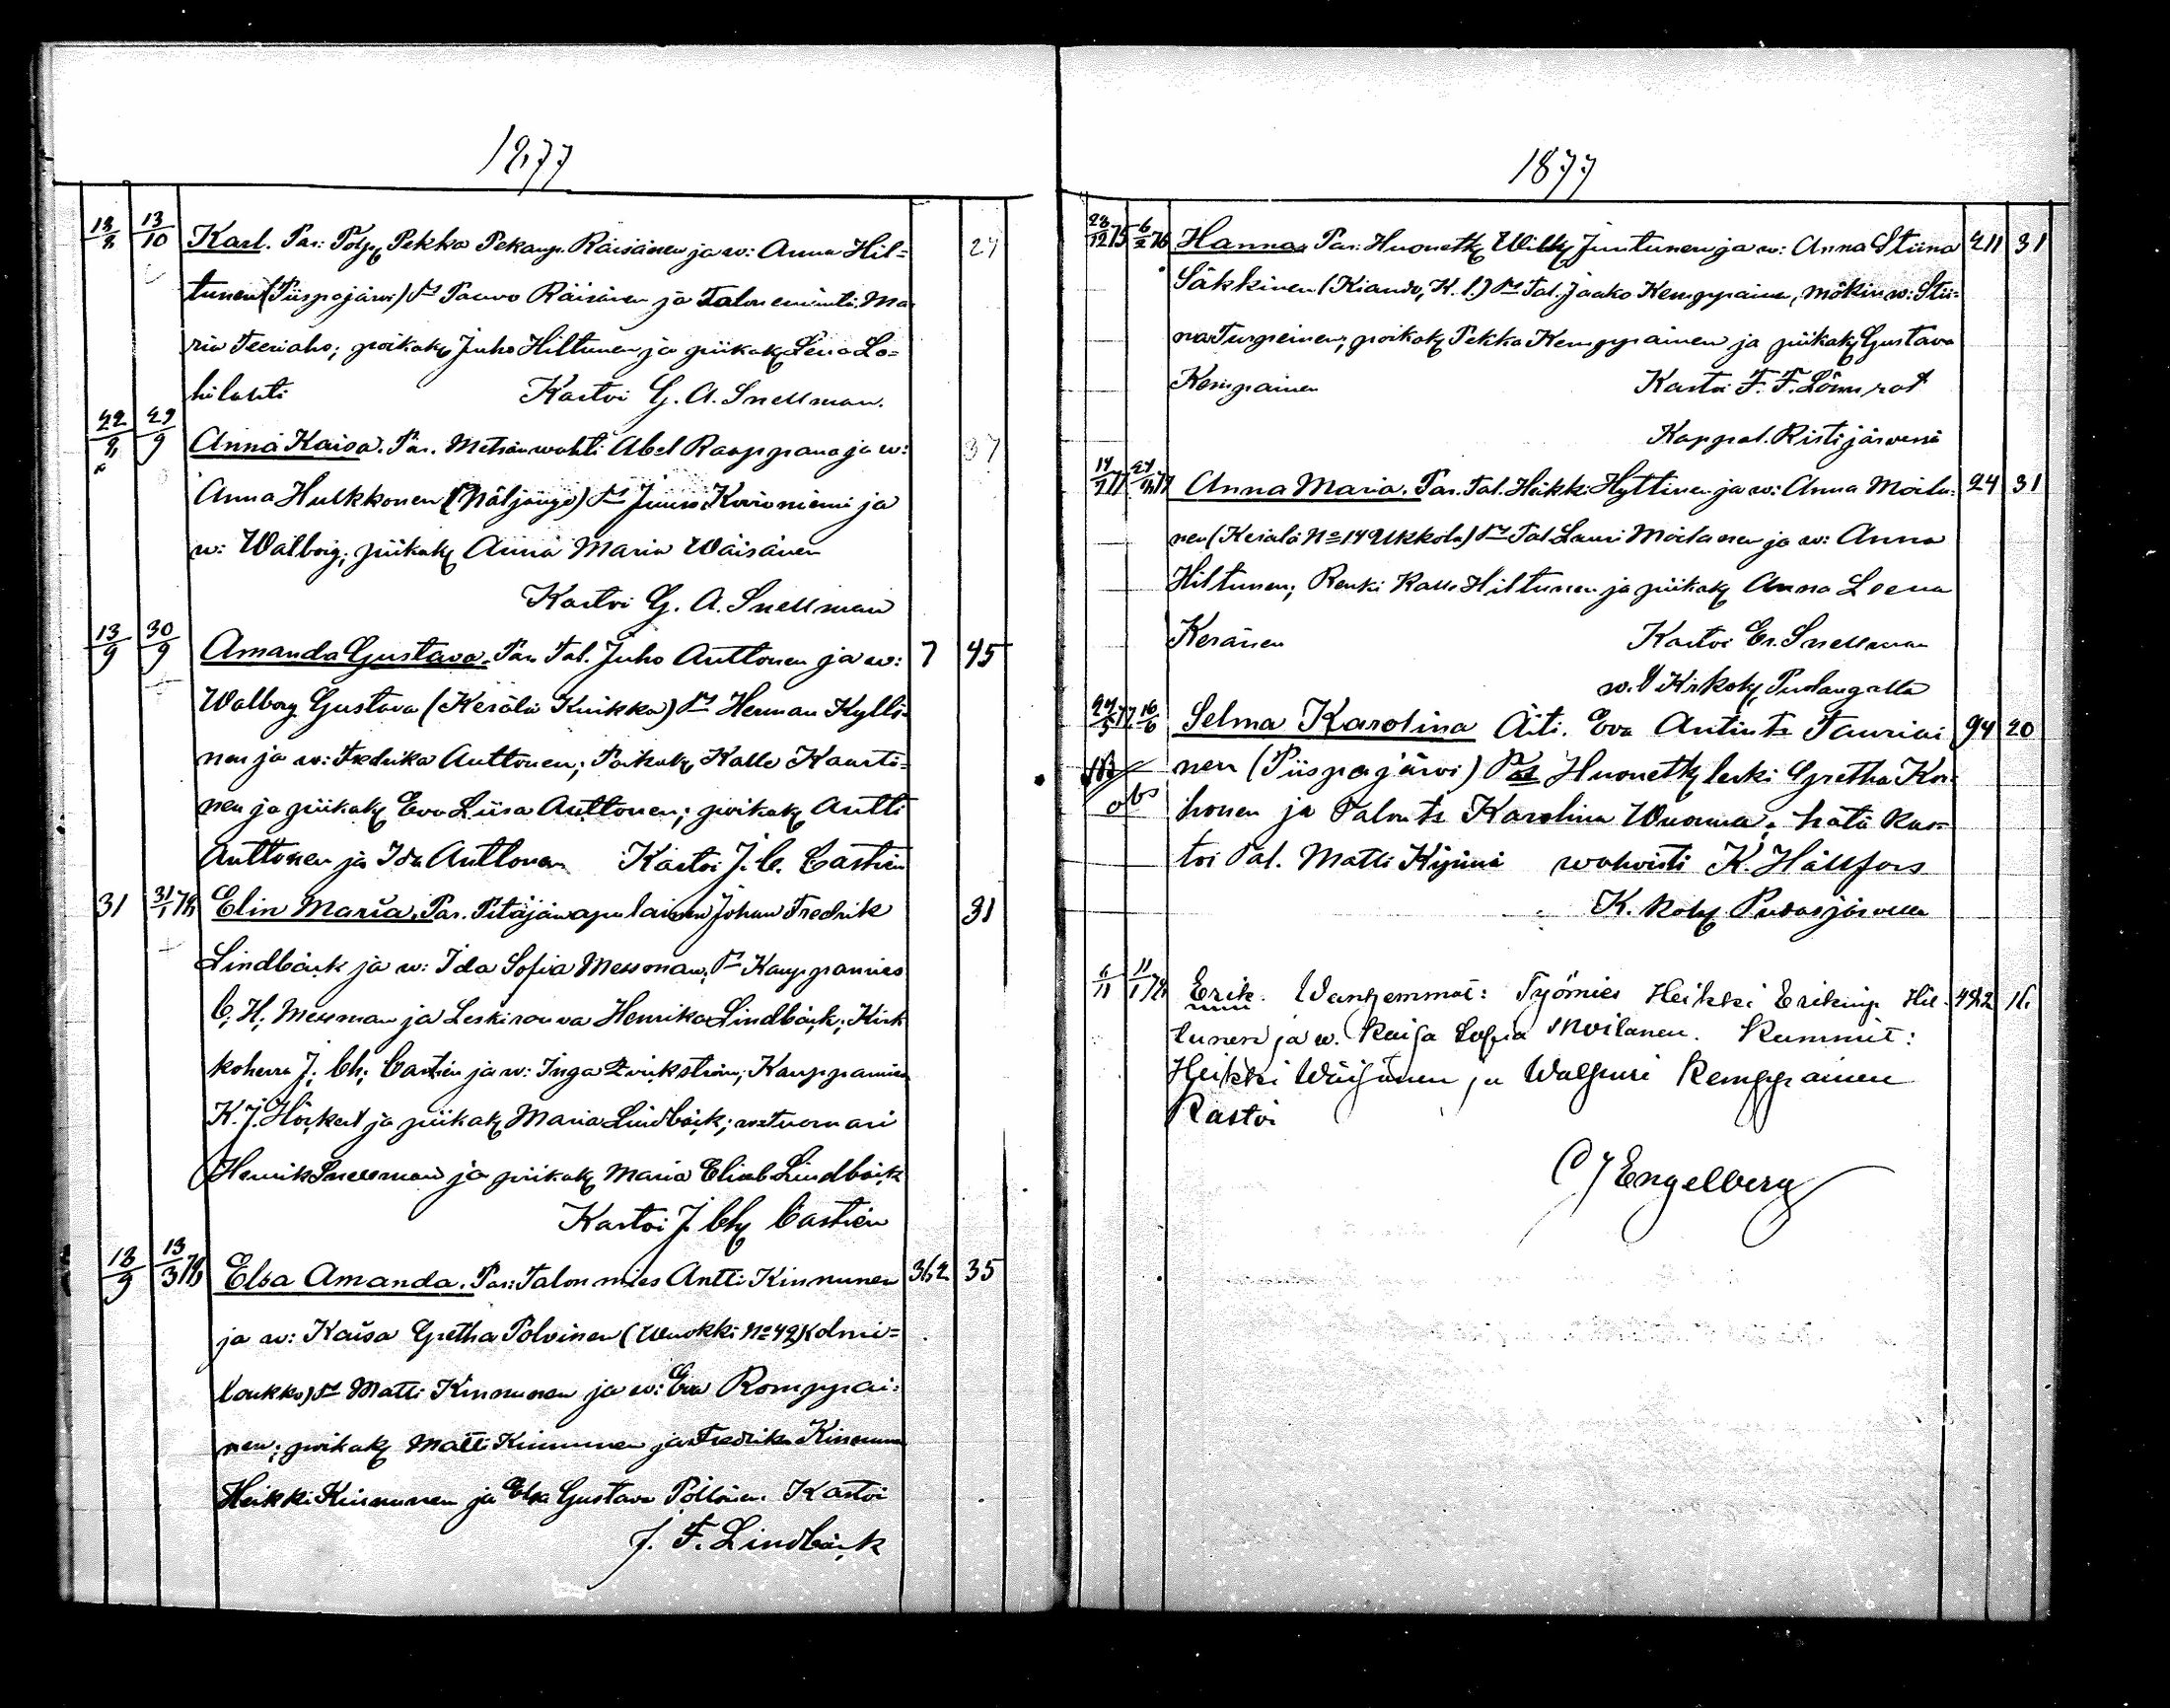 1877
13/8 13/10 Karl. Par: Polp. Pekka Pekanp. Räisänen ja w: Anna Hil= 24
tunen (Piispajärwi) Paavo Räisänen ja Talon emäntä Ma
ria Teeriaho; poikak Juho Hiltunen ja piikak Lena Lo=
hilahti Kastoi G. A. Snellman.
22/8 29/9 Anna Kaisa. Par. Metsänwahti Abel Rauppana ja w: 37
Anna Hulkkonen (Näljänge) Juuso Karioniemi ja
w: Walborg; piikak Anna Maria Wäisänen
Kastoi G. A. Snellman
13/9 30/9 Amanda Gustava. Par. Tal. Juho Anttonen ja w: 7 45
Walborg Gustava (Kerälä Kuikka) Herman Kylli=
nen ja w: Fredrika Anttonen; Poikak Kalle Kaarti=
nen ja piikak Eva Liisa Anttonen; poikak Antti
Anttonen ja Ida Anttonen Kastoi J. C. Castrén
31 31/1 78 Elin Maria. Par. Pitäjänapulainen Johan Fredrik 31
Lindbäck ja w: Ida Sofia Messman; Kauppamies
C. H. Messman ja Leskirouva Henrika Lindbäck; Kirk
koherra J. Ch. Castrén ja w: Inga Kauppamies
K. J. ja piikak Maria Lindbäck; w: tuomari
Henrik Snellman ja piikak Maria Elisab Lindbäck
Kastoi J. Ch. Castrén
13/9 13/3 78 Elsa Amanda. Par: Talon mies Antti Kinnunen 362 35
ja w: Kaisa Gretha Polvinen (Wuokki No 42 Kolmi=
loukko) Matti Kinnunen ja w: Eva Romppai=
nen; poikak Matti Kinnunen ja Fredrika Kinnunen
Heikki Kinnunen ja Elsa Gustava Pöllänen. Kastoi
J. F. Lindbäck
1877
28/12 75 6/2 76 Hanna. Par: Huonetk Juntunen ja w: Anna Stiina 211 31
Säkkinen (Kianto, K. l.) Tal. Jaako Kemppainen, mökin w: Stii=
na Turpeinen; poikak Pekka Kemppainen ja piikak Gustava
Kempainen Kastoi F. F. Lönnrot
Kappal. Ristijärvessä
Anna Maria. Par. Tal. Heikki Hyttinen ja w: Anna Moila= 24 31
nen (Kerälä No 14 Ukkola) Tal Lauri Moilanen ja w: Anna
Hiltunen; Renki Kalle Hiltunen ja piikak Anna Leena
Keränen Kastoi Er. Snellman
w. Kirkoh
Selma Karolina Äiti. Eva Antint: Tauriai 94 20
nen (Piispajärvi) Huonetk leski Gretha Kor=
honen ja Talont: Karolina Wuorma. hätä kas=
toi Tal. Matti Kijinä wahvisti K. Hällfors
K. Koh Pudasjärvellä
6/11 11/1 78 Erik. Wanhemmat: Työmies Heikki Erikinp Hil- 492 16
tunen ja w. Kaisa Sofia Moilanen. Kummit:
Heikki Wäisänen ja Walpuri Kemppainen
Kastoi
C J Engelberg